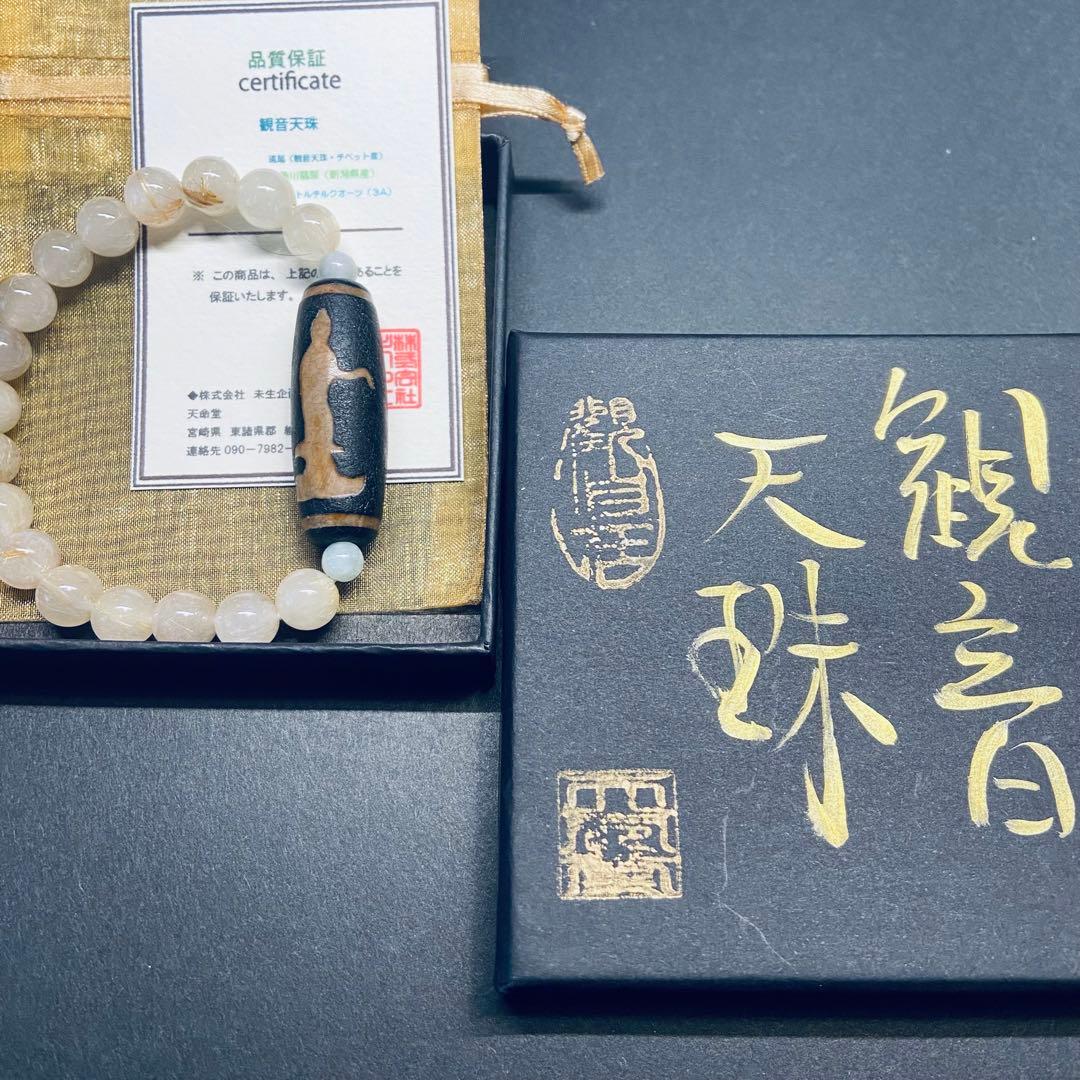 品質保証
certificate
観音天珠
瑪瑙（観音天珠・チベット産）
川翡翠（新潟県産）
トルチルクオーツ（3A）
※ この商品は、上記の
あることを
保証いたします。
◆株式会社 未生企画
天命堂
宮崎県 東諸県郡
連絡先 090-7982-
觀音
天珠